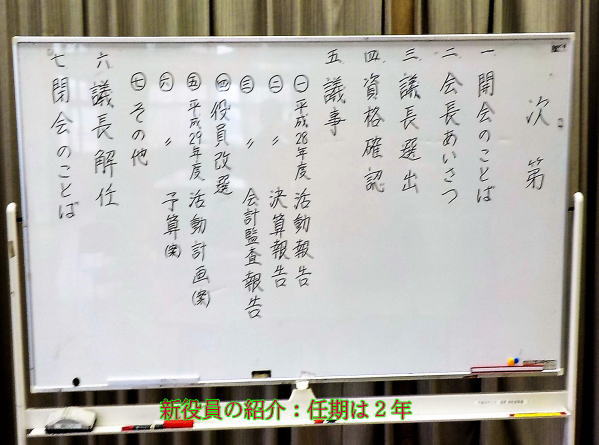 次第
一 開会のことば
二 会長あいさつ
三 議長選出
四 資格確認
五 議事
㊀ 平成28年度 活動報告
㊁ 〃 決算報告
㊂ 〃 会計監査報告
㊃ 役員改選
㊄ 平成29年度 活動計画(案)
㊅ 〃 予算(案)
㊆ その他
六 議長解任
七 閉会のことば
新役員の紹介：任期は２年